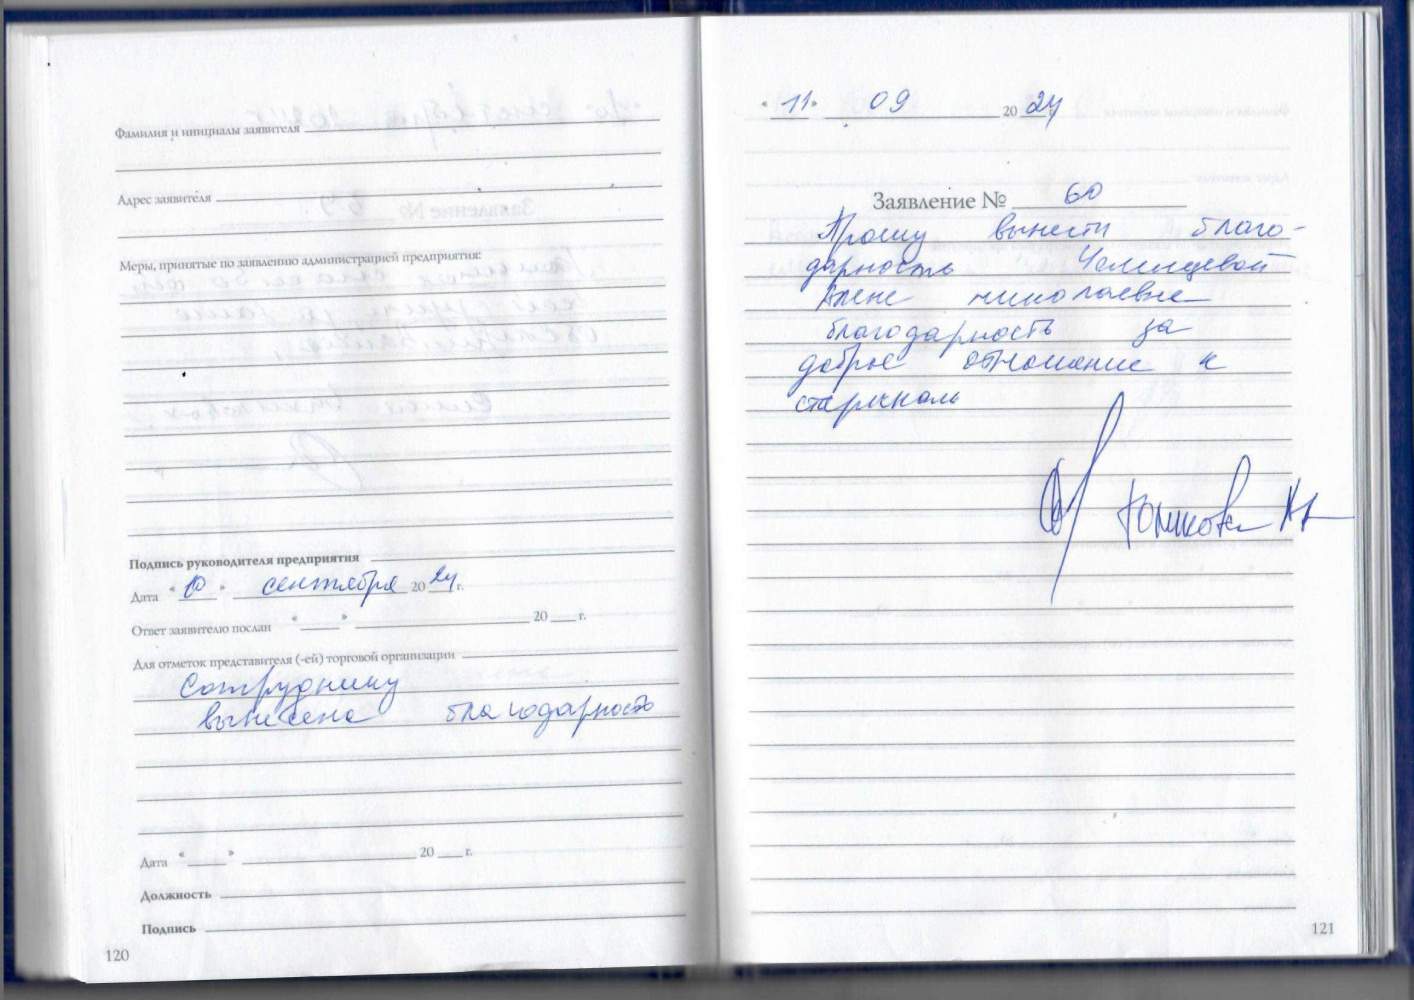 Фамилия и инициалы заявителя
Адрес заявителя
Меры, принятые по заявлению администрацией предприятия:
Подпись руководителя предприятия
Дата "10" сентября 2024 г.
Ответ заявителю послан "___" ___ 20 ___ г.
Для отметок представителя (-ей) торговой организации
Сотруднику
вынесена благодарность
Дата "___" ___ 20 ___ г.
Должность
Подпись
120
"11" 09 2024
Заявление № 60
Прошу вынести благо-
дарность
николаевне
благодарность за
доброе отношение к
старикам
121